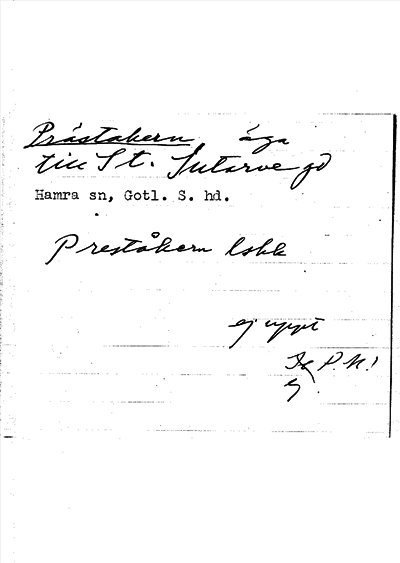 Prästakern, äga
till St. Sutarve gd
Hamra sn, Gotl. S. hd.
Preståkern lskk
ej uppt
P.M.!